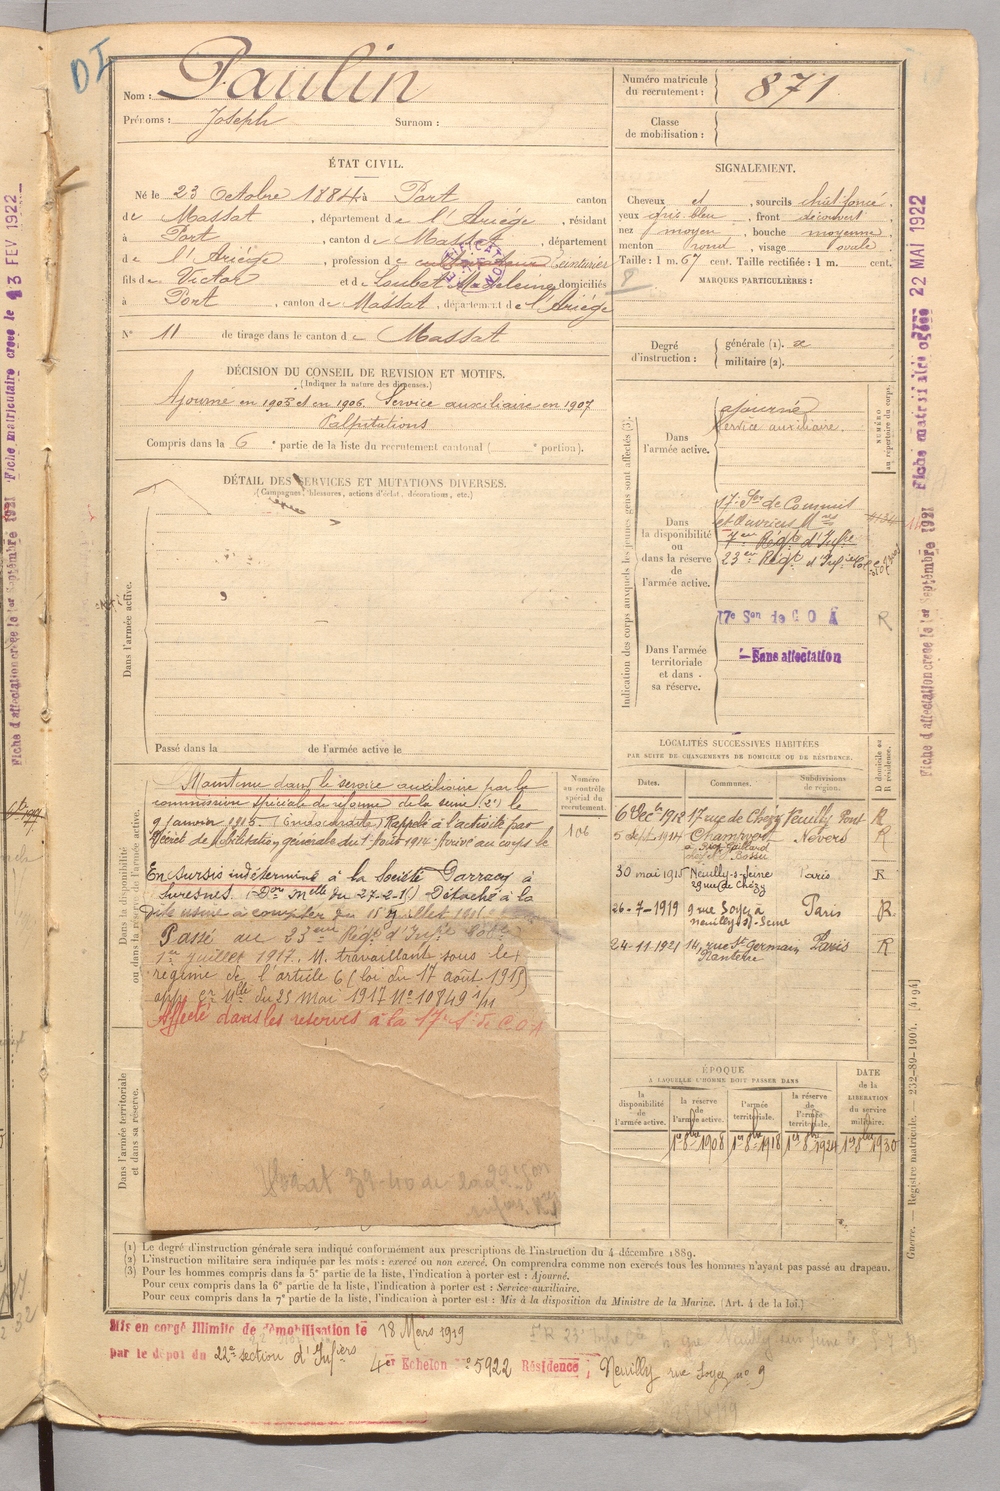 DI
Nom : Paulin
Prénoms : Joseph Surnom :
Numéro matricule du recrutement : 871
Classe de mobilisation :
ÉTAT CIVIL.
Né le 23 Octobre 1884 à Port canton
de Massat, département de l'Ariége, résidant
à Port, canton de Massat, département
de l'Ariége, profession de cultivateur Teinturier
fils de Victor et de Loubet Madeleine domiciliés
à Port, canton de Massat, département de l'Ariége
N° 11 de tirage dans le canton de Massat
SIGNALEMENT.
Cheveux et, sourcils chât foncé,
yeux gris bleu, front découvert
nez moyen, bouche moyenne
menton rond, visage ovale
Taille : 1 m. 67 cent. Taille rectifiée : 1 m. cent.
MARQUES PARTICULIÈRES :
Degré d'instruction : générale (1). 2
militaire (2).
DÉCISION DU CONSEIL DE REVISION ET MOTIFS.
(Indiquer la nature des dispenses.)
Ajourné en 1905 et en 1906. Service auxiliaire en 1907
Palpitations
Compris dans la 6e partie de la liste du recrutement cantonal ( e portion).
DÉTAIL DES SERVICES ET MUTATIONS DIVERSES.
(Campagnes, blessures, actions d'éclat, décorations, etc.)
Dans l'armée active.
Passé dans la de l'armée active le
Indication des corps auxquels les jeunes gens sont affectés (3).
NUMÉRO au répertoire du corps.
Dans l'armée active.
ajourné
Service auxiliaire.
Dans la disponibilité ou dans la réserve de l'armée active.
17e Son de Commis
et Ouvriers Mres
7eme Régt d'Infie
23eme Régt d'Infie Colle
17e Son de C O A
R
Dans l'armée territoriale et dans sa réserve.
Sans affectation
Dans la disponibilité ou dans la réserve de l'armée active.
Maintenu dans le service auxiliaire par la
commission spéciale de réforme de la Seine (2e) le
9 Janvier 1915. Rappelé à l'activité par
Décret de Mobilisation générale du 1er Août 1914. Arrivé au corps le
En sursis indéterminé à la Société Darracq à
Suresnes. (Don Melle du 27-2-1 ) Détaché à la
dite usine à compter du 15 Juillet 191
Passé au 23eme Régt d'Infie Colle
1er juillet 1917. M. travaillant sous le
régime de l'article 6 (loi du 17 août 1915)
app. Clle du 25 Mai 1917 N° 10849 1/11
Affecté dans les réserves à la 17e S. de C.O.A
Numéro au contrôle spécial du recrutement.
106
LOCALITÉS SUCCESSIVES HABITÉES
PAR SUITE DE CHANGEMENTS DE DOMICILE OU DE RÉSIDENCE.
Dates. Communes. Subdivisions de région. D domicile ou R résidence.
6 Dec 1912 17 rue de Chézy Neuilly R
5 Sept 1914 Champvert Nevers R
30 mai 1915 Neuilly-s-Seine 29 rue de Chézy Paris R
26-7-1919 9 rue Soyer à Neuilly s/-Seine Paris R
24-11-1921 14, rue St Germain Nanterre Paris R
Dans l'armée territoriale et dans sa réserve.
ÉPOQUE
A LAQUELLE L'HOMME DOIT PASSER DANS
la disponibilité de l'armée active. la réserve de l'armée active. l'armée territoriale. la réserve de l'armée territoriale. DATE de la LIBÉRATION du service militaire.
1er 8bre 1908 1er 8bre 1918 1er 8bre 1924 1er 8bre 1930
(1) Le degré d'instruction générale sera indiqué conformément aux prescriptions de l'instruction du 4 décembre 1889.
(2) L'instruction militaire sera indiquée par les mots : exercé ou non exercé. On comprendra comme non exercés tous les hommes n'ayant pas passé au drapeau.
(3) Pour les hommes compris dans la 5e partie de la liste, l'indication à porter est : Ajourné.
Pour ceux compris dans la 6e partie de la liste, l'indication à porter est : Service auxiliaire.
Pour ceux compris dans la 7e partie de la liste, l'indication à porter est : Mis à la disposition du Ministre de la Marine. (Art. 4 de la loi.)
Mis en congé illimité de démobilisation le 18 Mars 1919
par le dépôt du 22e section d'Infiers 4er Echelon N° 5922 Résidence, Neuilly rue Soyez no 9
Guerre. — Registre matricule. — 232-89-1904. [4194]
Fiche d'affectation créée le 1er Septembre 1921 Fiche matriculaire créée le 22 MAI 1922
Fiche d'affectation créée le 1er Septembre 1921 Fiche matriculaire créée le 13 FEV 1922